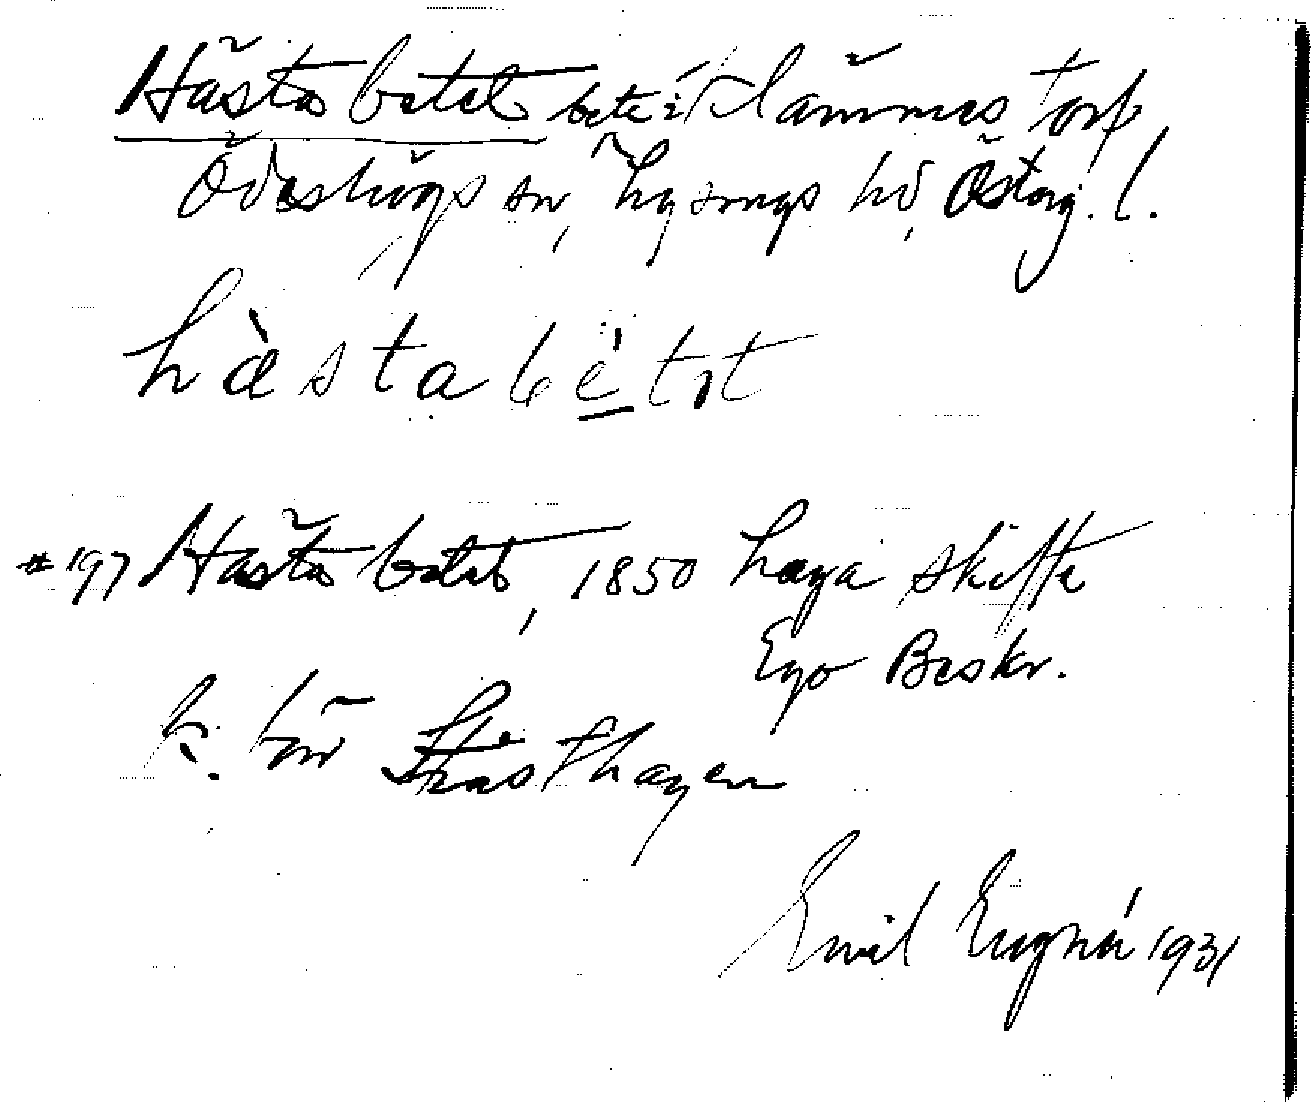 Hästabetet bete i Klämmestorp
Ödeshögs sn, Lysings hd, Österg. l.
hæ̀stabètət
#197 Hästabetet, 1850 Laga skifte
Ego Beskr.
k. för Hästhagen
Emil Eugnér 1931